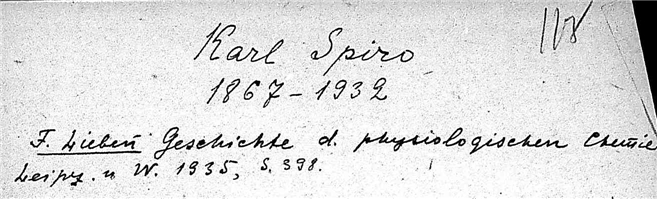 Karl Spiro
1867-1932
F. Lieben Geschichte d. physiologischen Chemie
Leipz. u W. 1935, S. 398.